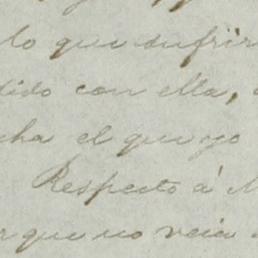 lo que sufrir
dido con ella,
cha el que yo
Respecto á
que no veia